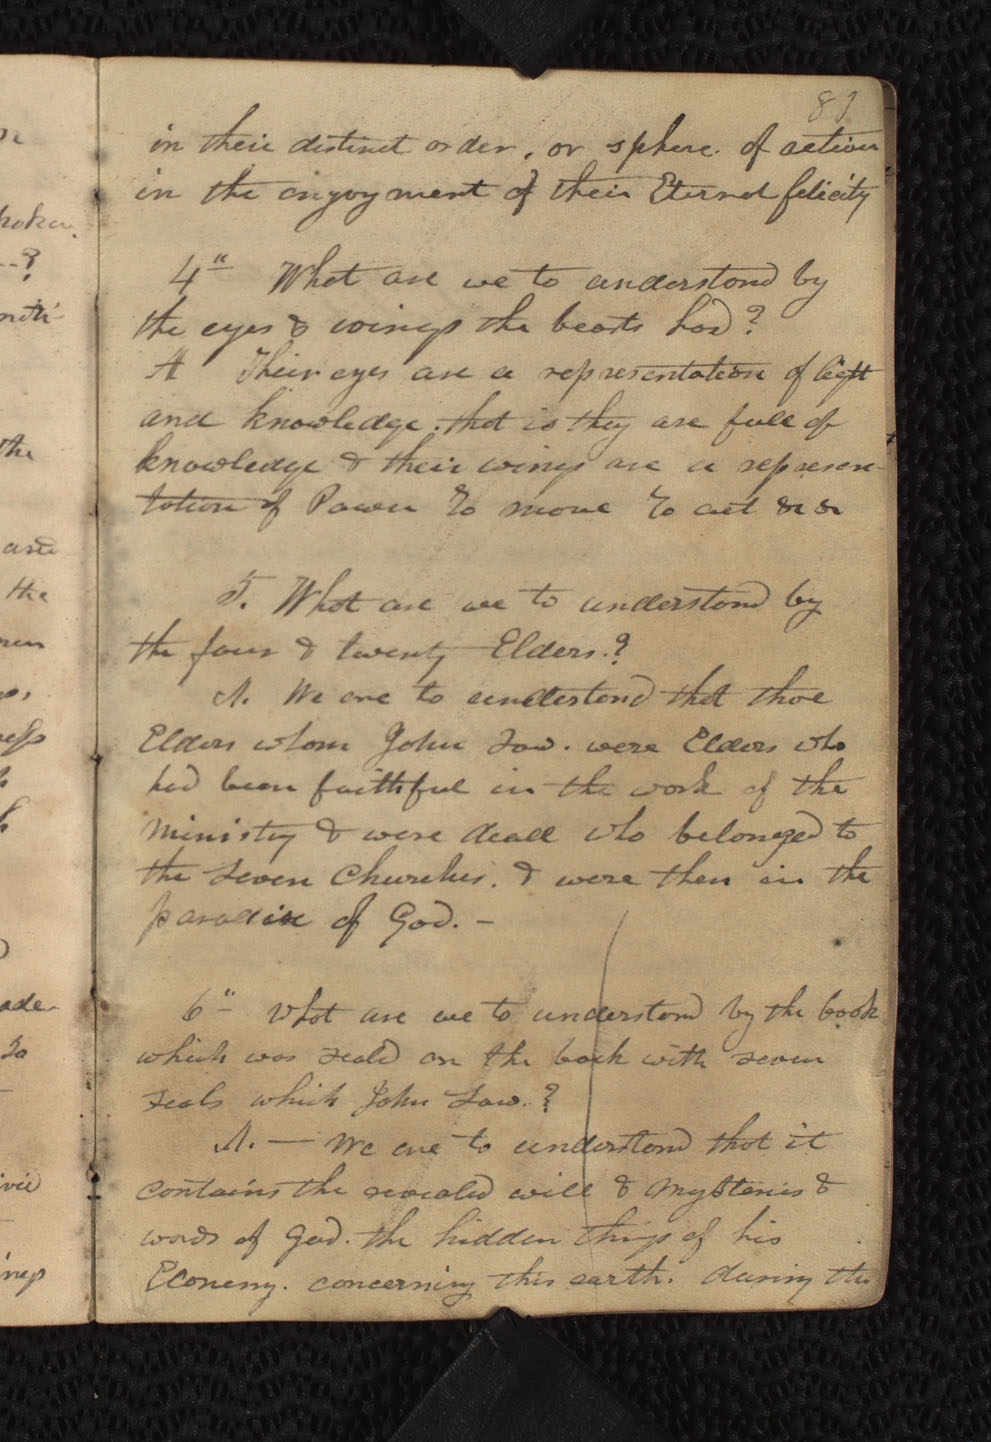 81
in their distinct order, or sphere. of action
in the enjoyment of their Eternal felicity
4" What are we to understand by
the eyes & wings the beasts had?
A Their eyes are a representation of light
and knowledge. that is they are full of
knowledge & their wings are a represen-
tation of Power to move to act &c &c
5. What are we to understand by
the four & twenty Elders.?
A. We are to understand that thoe
Elders whom John Saw. were Elders who
had been faithful in the work of the
Ministry & were dead who belonged to
the Seven Churches. & were then in the
paradise of God. -
6" What are we to understand by the book
which was seald on the back with seven
seals which John Saw.?
A. — We are to understand that it
contains the revealed will & Mysteries &
words of God. the hidden things of his
Economy. concerning this earth. during the